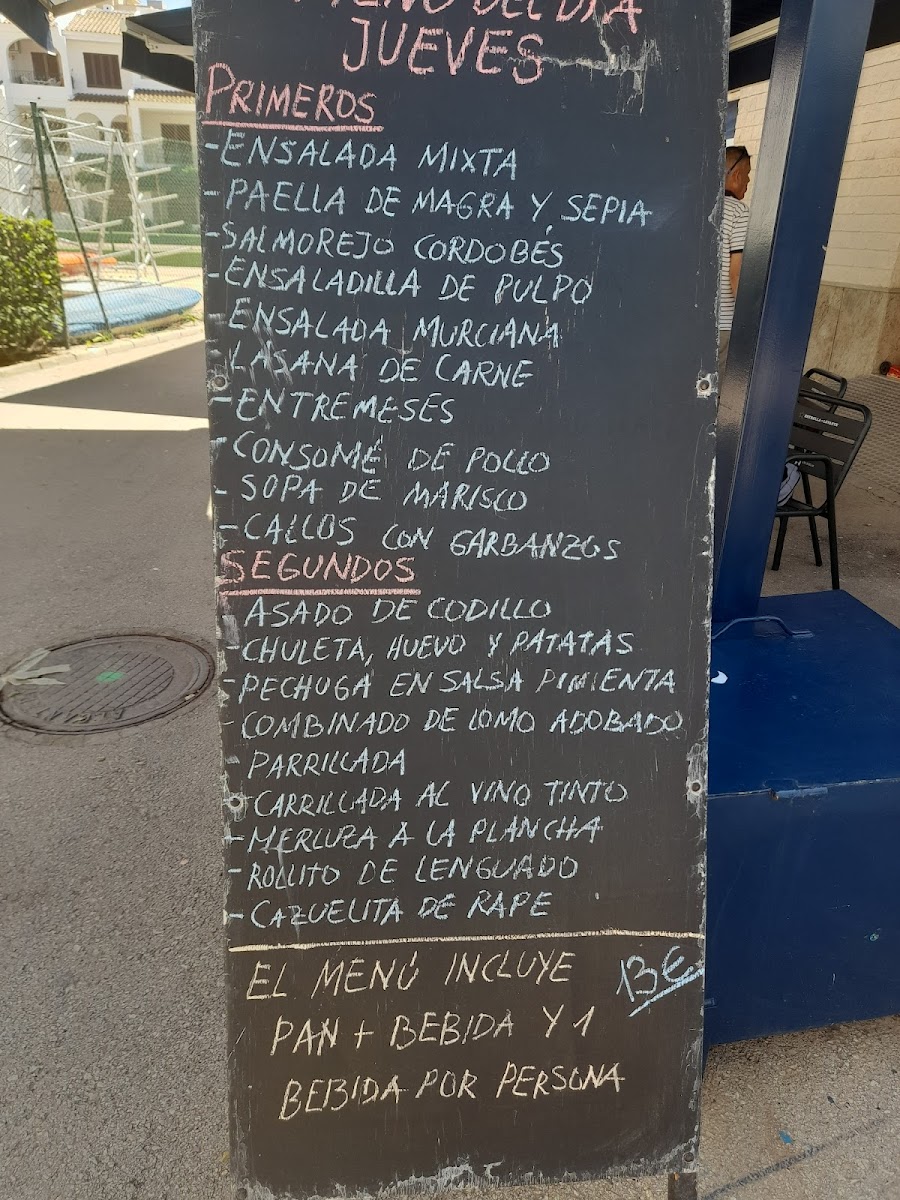 MENÚ DEL DÍA
JUEVES
PRIMEROS
-ENSALADA MIXTA
-PAELLA DE MAGRA Y SEPIA
-SALMOREJO CORDOBÉS
-ENSALADILLA DE PULPO
-ENSALADA MURCIANA
-LASANA DE CARNE
-ENTREMESES
-CONSOMÉ DE POLLO
-SOPA DE MARISCO
-CALLOS CON GARBANZOS
SEGUNDOS
ASADO DE CODILLO
-CHULETA, HUEVO Y PATATAS
-PECHUGA EN SALSA PIMIENTA
-COMBINADO DE LOMO ADOBADO
-PARRILLADA
-CARRILLADA AL VINO TINTO
-MERLUZA A LA PLANCHA
-ROLLITO DE LENGUADO
-CAZUELITA DE RAPE
EL MENÚ INCLUYE 13€
PAN + BEBIDA Y 1
BEBIDA POR PERSONA